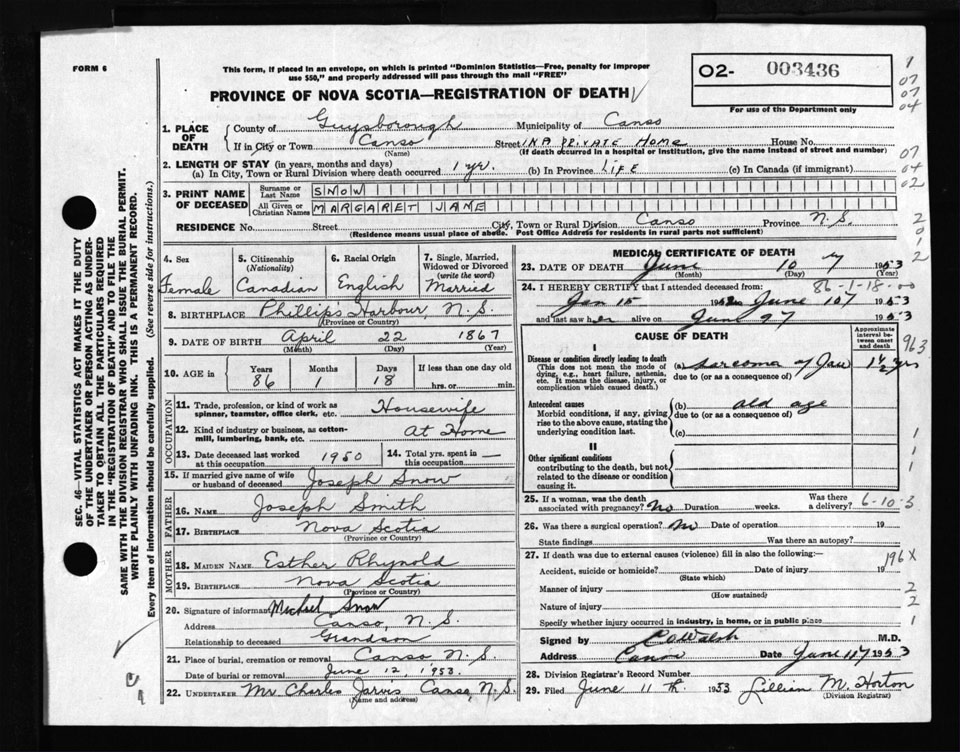 FORM 6
This form, if placed in an envelope, on which is printed "Dominion Statistics—Free, penalty for improper
use $50," and properly addressed will pass through the mail "FREE"
PROVINCE OF NOVA SCOTIA—REGISTRATION OF DEATH
02- 003436
For use of the Department only
1
07
07
04
07
04
02
2
0
1
2
1. PLACE OF DEATH
County of Guysborough Municipality of Canso
If in City or Town Canso Street IN A PRIVATE HOME House No.
(Name) (If death occurred in a hospital or institution, give the name instead of street and number)
2. LENGTH OF STAY (in years, months and days)
(a) In City, Town or Rural Division where death occurred 1 yr. (b) In Province LIFE (c) In Canada (if immigrant)
3. PRINT NAME OF DECEASED
Surname or Last Name SNOW
All Given or Christian Names MARGARET JANE
RESIDENCE No. Street City, Town or Rural Division Canso Province N.S.
(Residence means usual place of abode. Post Office Address for residents in rural parts not sufficient)
4. Sex Female
5. Citizenship (Nationality) Canadian
6. Racial Origin English
7. Single, Married, Widowed or Divorced (write the word) Married
8. BIRTHPLACE Phillip's Harbour, N.S.
(Province or Country)
9. DATE OF BIRTH April 22 1867
(Month) (Day) (Year)
10. AGE in Years 86 Months 1 Days 18 If less than one day
hrs. or min.
OCCUPATION
11. Trade, profession, or kind of work as
spinner, teamster, office clerk, etc. Housewife
12. Kind of industry or business, as cotton-
mill, lumbering, bank, etc. At Home
13. Date deceased last worked
at this occupation 1950
14. Total yrs. spent in
this occupation —
15. If married give name of wife
or husband of deceased Joseph Snow
FATHER
16. NAME Joseph Smith
17. BIRTHPLACE Nova Scotia
(Province or Country)
MOTHER
18. MAIDEN NAME Esther Rhynold
19. BIRTHPLACE Nova Scotia
(Province or Country)
20. Signature of informant Michael Snow
Address Canso, N.S.
Relationship to deceased Grandson
21. Place of burial, cremation or removal Canso N.S.
Date of burial or removal June 12, 1953.
22. UNDERTAKER Mr. Charles Jarvis Canso, N.S.
(Name and address)
MEDICAL CERTIFICATE OF DEATH
23. DATE OF DEATH June 10 1953
(Month) (Day) (Year)
86-1-18-00
24. I HEREBY CERTIFY that I attended deceased from:
Jan 15 to June 10 1953
and last saw her alive on June 9 1953
CAUSE OF DEATH
Approximate interval between onset and death
963
I
Disease or condition directly leading to death
(This does not mean the mode of dying, e.g., heart failure, asthenia, etc. It means the disease, injury, or complication which caused death.)
(a) Sarcoma of Jaw 1½ yrs
due to (or as a consequence of)
Antecedent causes
Morbid conditions, if any, giving rise to the above cause, stating the underlying condition last.
(b) old age
due to (or as a consequence of)
(c)
II
Other significant conditions
contributing to the death, but not related to the disease or condition causing it.
1
1
25. If a woman, was the death
associated with pregnancy? No Duration weeks. Was there a delivery?
6-10-3
26. Was there a surgical operation? No Date of operation 19
State findings Was there an autopsy?
27. If death was due to external causes (violence) fill in also the following:—
196X
Accident, suicide or homicide? Date of injury 19
(State which)
Manner of injury
(How sustained)
2
Nature of injury
2
Specify whether injury occurred in industry, in home, or in public place
1
Signed by C O Walsh M.D.
Address Canso Date June 11 1953
28. Division Registrar's Record Number
29. Filed June 11th. 1953 Lillian M. Horton
(Division Registrar)
SEC. 46—VITAL STATISTICS ACT MAKES IT THE DUTY
OF THE UNDERTAKER OR PERSON ACTING AS UNDER-
TAKER TO OBTAIN ALL THE PARTICULARS REQUIRED
IN THE "REGISTRATION OF DEATH" AND TO FILE THE
SAME WITH THE DIVISION REGISTRAR WHO SHALL ISSUE THE BURIAL PERMIT.
WRITE PLAINLY WITH UNFADING INK. THIS IS A PERMANENT RECORD.
Every item of information should be carefully supplied. (See reverse side for instructions.)